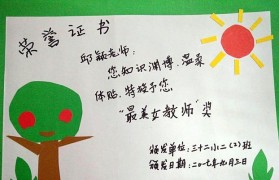 荣誉证书
邱颖老师：
您知识渊博、温柔
体贴，特授予您
“最美女教师”奖
颁发单位：三十二小二（2）班
颁发日期：二〇一七年九月三日